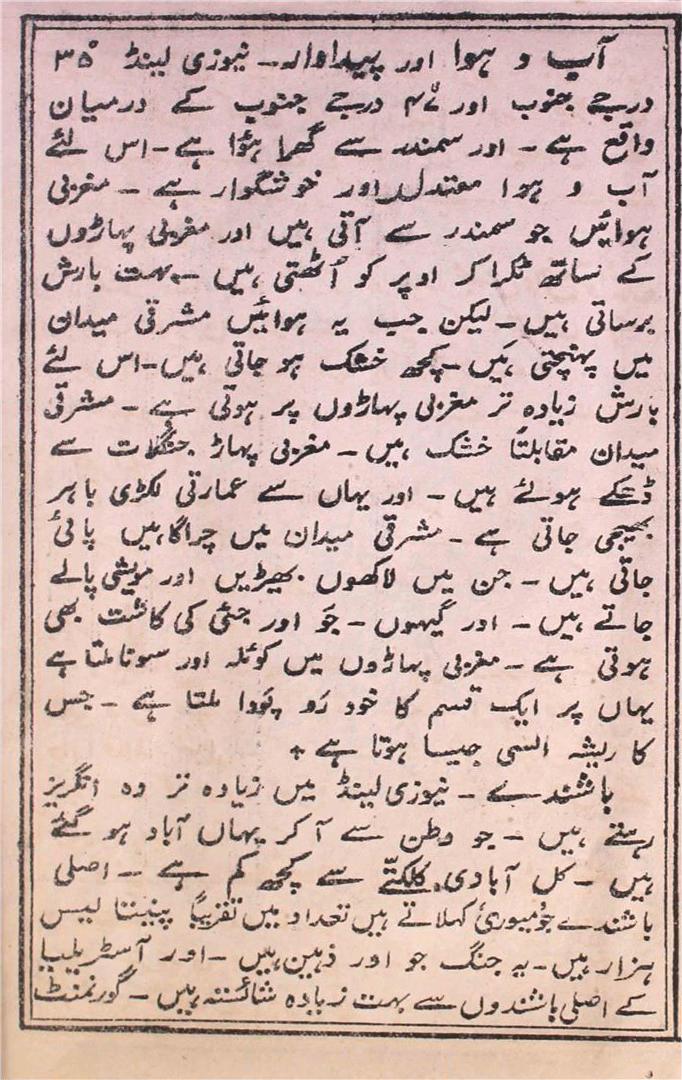 آب و ہوا اور پیداوار۔ نیوزی لینڈ ۳۵°
درجے جنوب اور ۴۷° درجے جنوب کے درمیان
واقع ہے۔ اور سمندر سے گھرا ہؤا ہے۔ اس لئے
آب و ہوا معتدل اور خوشگوار ہے۔ مغربی
ہوائیں جو سمندر سے آتی ہیں اور مغربی پہاڑوں
کے ساتھ ٹکرا کر اوپر کو اُٹھتی ہیں۔ بہت بارش
برساتی ہیں۔ لیکن جب یہ ہوائیں مشرقی میدان
میں پہنچتی ہیں۔ کچھ خشک ہو جاتی ہیں۔ اس لئے
بارش زیادہ تر مغربی پہاڑوں پر ہوتی ہے۔ مشرقی
میدان مقابلتاً خشک ہیں۔ مغربی پہاڑ جنگلات سے
ڈھکے ہوئے ہیں۔ اور یہاں سے عمارتی لکڑی باہر
بھیجی جاتی ہے۔ مشرقی میدان میں چراگاہیں پائی
جاتی ہیں۔ جن میں لاکھوں بھیڑیں اور مویشی پالے
جاتے ہیں۔ اور گیہوں۔ جَو اور جئی کی کاشت بھی
ہوتی ہے۔ مغربی پہاڑوں میں کوئلہ اور سونا ملتا ہے
یہاں پر ایک قسم کا خود رَو پَودا ملتا ہے۔ جس
کا ریشہ السی جیسا ہوتا ہے +
باشندے۔ نیوزی لینڈ میں زیادہ تر وہ انگریز
رہتے ہیں۔ جو وطن سے آ کر یہاں آباد ہو گئے
ہیں۔ کل آبادی کلکتّے سے کچھ کم ہے۔ اصلی
باشندے جو میوری کہلاتے ہیں تعداد میں تقریباً پینتالیس
ہزار ہیں۔ یہ جنگ جو اور ذہین ہیں۔ اور آسٹریلیا
کے اصلی باشندوں سے بہت زیادہ شائستہ ہیں۔ گورنمنٹ